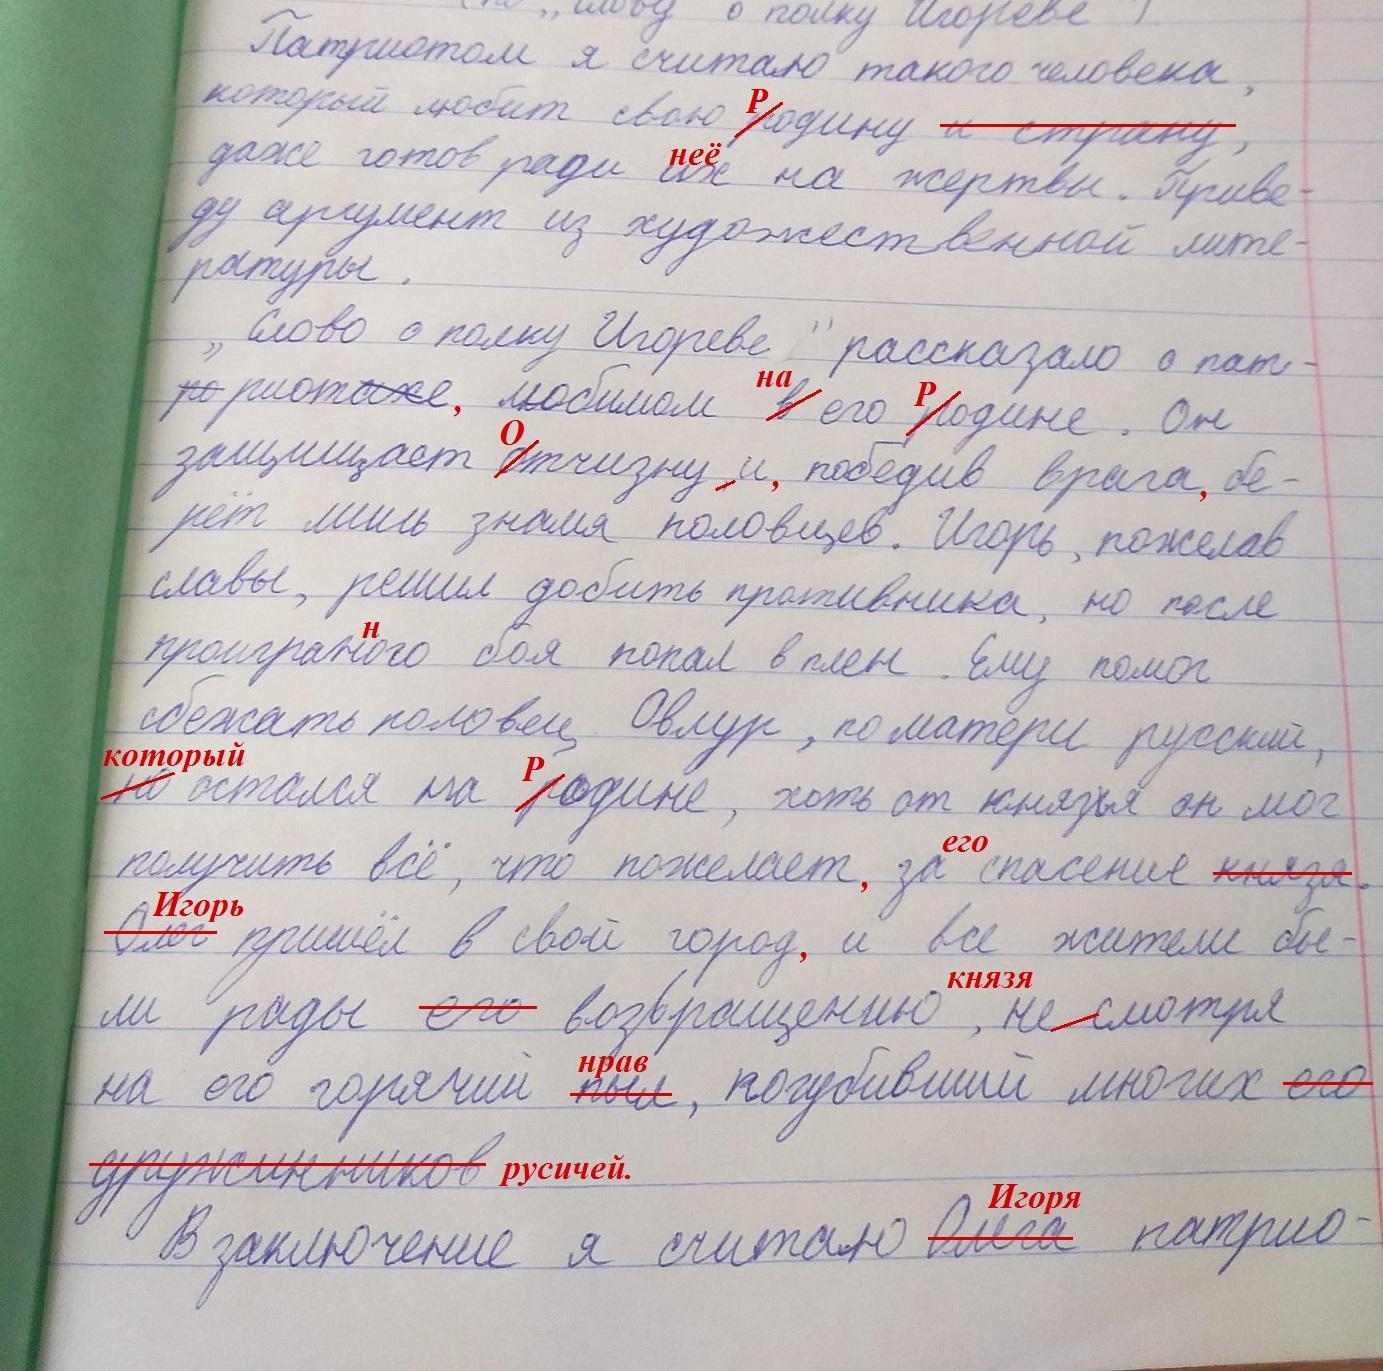 (по „Слову о полку Игореве")
Патриотом я считаю такого человека,
Р
который любит свою родину и страну,
неё
даже готов ради их на жертвы. Приве-
ду аргумент из художественной лите-
ратуры.
„Слово о полку Игореве" рассказало о пат-
на Р
риотаже, любимом в его родине. Он
О
защищает отчизну и, победив врага, бе-
рёт лишь знамя половцев. Игорь, пожелав
славы, решил добить противника, но после
н
програного боя попал в плен. Ему помог
сбежать половец Овлур, по матери русский,
который Р
но остался на родине, хоть от князья он мог
его
получить всё, что пожелает, за спасение князя.
Игорь
Олег пришёл в свой город, и все жители бы-
князя
ли рады его возвращению, не смотря
нрав
на его горячий пыл, погубивший многих его
дружинников русичей.
Игоря
В заключение я считаю Олега патрио-